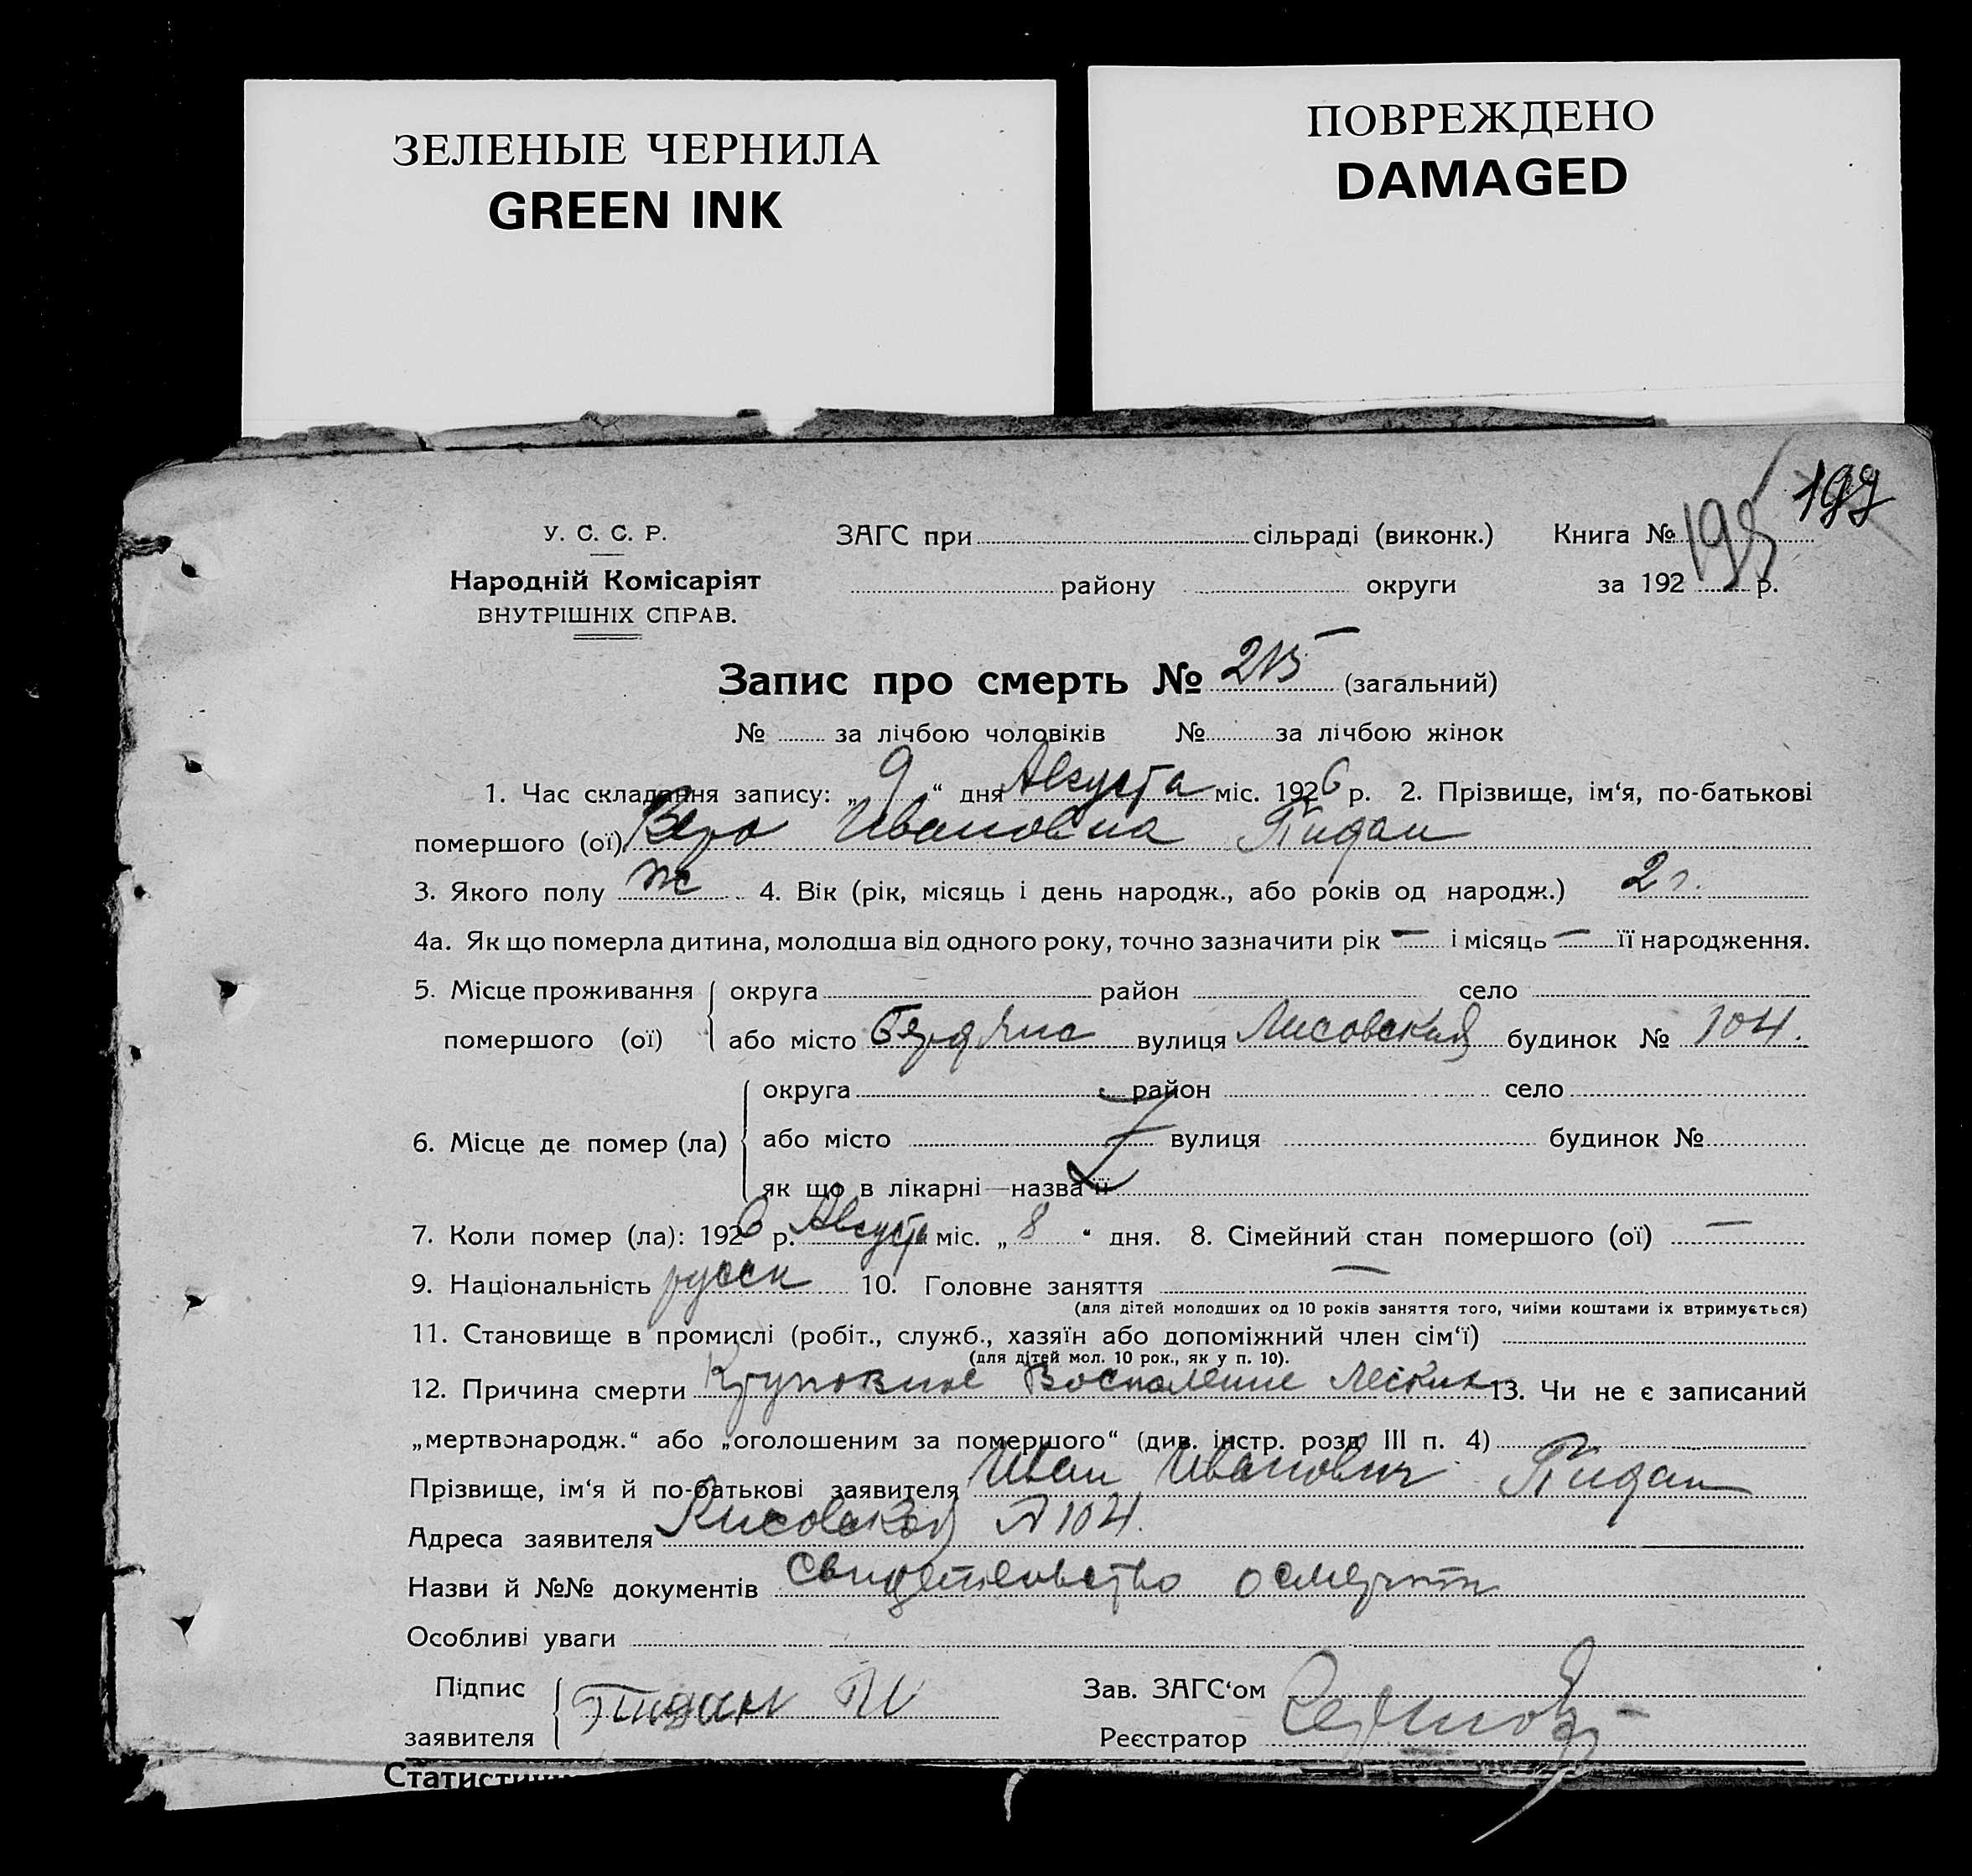 ЗЕЛЕНЫЕ ЧЕРНИЛА
GREEN INK
ПОВРЕЖДЕНО
DAMAGED
199
У. С. С. Р. ЗАГС при сільраді (виконк.) Книга № 195
Народній Комісаріят району округи за 192 р.
ВНУТРІШНІХ СПРАВ.
Запис про смерть № 215 (загальний)
№ за лічбою чоловіків № за лічбою жінок
1. Час складання запису: „ 9 “ дня Августа міс. 1926 р. 2. Прізвище, ім‘я, по-батькові
помершого (ої) Вера Ивановна Пидан
3. Якого полу ж 4. Вік (рік, місяць і день народж., або років од народж.) 2 г.
4а. Як що померла дитина, молодша від одного року, точно зазначити рік — і місяць — її народження.
5. Місце проживання округа район село
помершого (ої) або місто вулиця Лисовская будинок № 104.
округа район село
6. Місце де помер (ла) або місто вулиця будинок №
як що в лікарні—назва її
7. Коли помер (ла): 1926 р. Августа міс. „ 8 “ дня. 8. Сімейний стан помершого (ої) —
9. Національність русск 10. Головне заняття —
(для дітей молодших од 10 років заняття того, чиїми коштами іх втримується)
11. Становище в промислі (робіт., служб., хазяїн або допоміжний член сім‘ї)
(для дітей мол. 10 рок., як у п. 10).
12. Причина смерти Крупозное Воспаление Легких 13. Чи не є записаний
„мертвонародж.“ або „оголошеним за помершого“ (див. інстр. розд. III п. 4)
Прізвище, ім‘я й по-батькові заявителя Иван Иванович Пидан
Адреса заявителя Лисовская № 104.
Назви й №№ документів Свидетельство о смерти
Особливі уваги
Підпис Пидан Зав. ЗАГС‘ом
заявителя Реєстратор